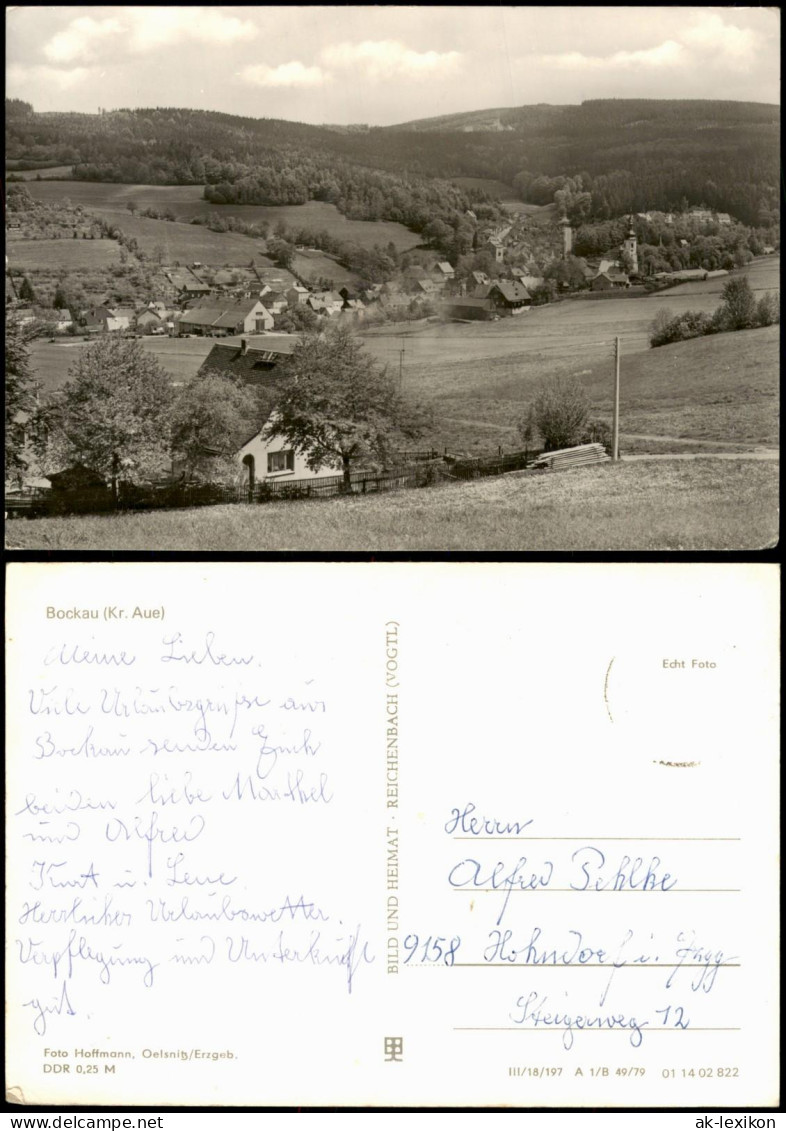 Bockau (Kr. Aue)
Meine Lieben.
Viele Urlaubsgrüße aus
Bockau senden Euch
beiden liebe Marthel
und Alfred
Kurt u. Lene.
Herrliches Urlaubswetter.
Verpflegung und Unterkunft
gut.
Foto Hoffmann, Oelsnitz/Erzgeb.
DDR 0,25 M
BILD UND HEIMAT · REICHENBACH (VOGTL)
Echt Foto
Herrn
Alfred Pehlke
9158 Hohndorf i.
Steigerweg 12
III/18/197 A 1/B 49/79 01 14 02 822
ak-lexikon
www.ak-lexikon.de